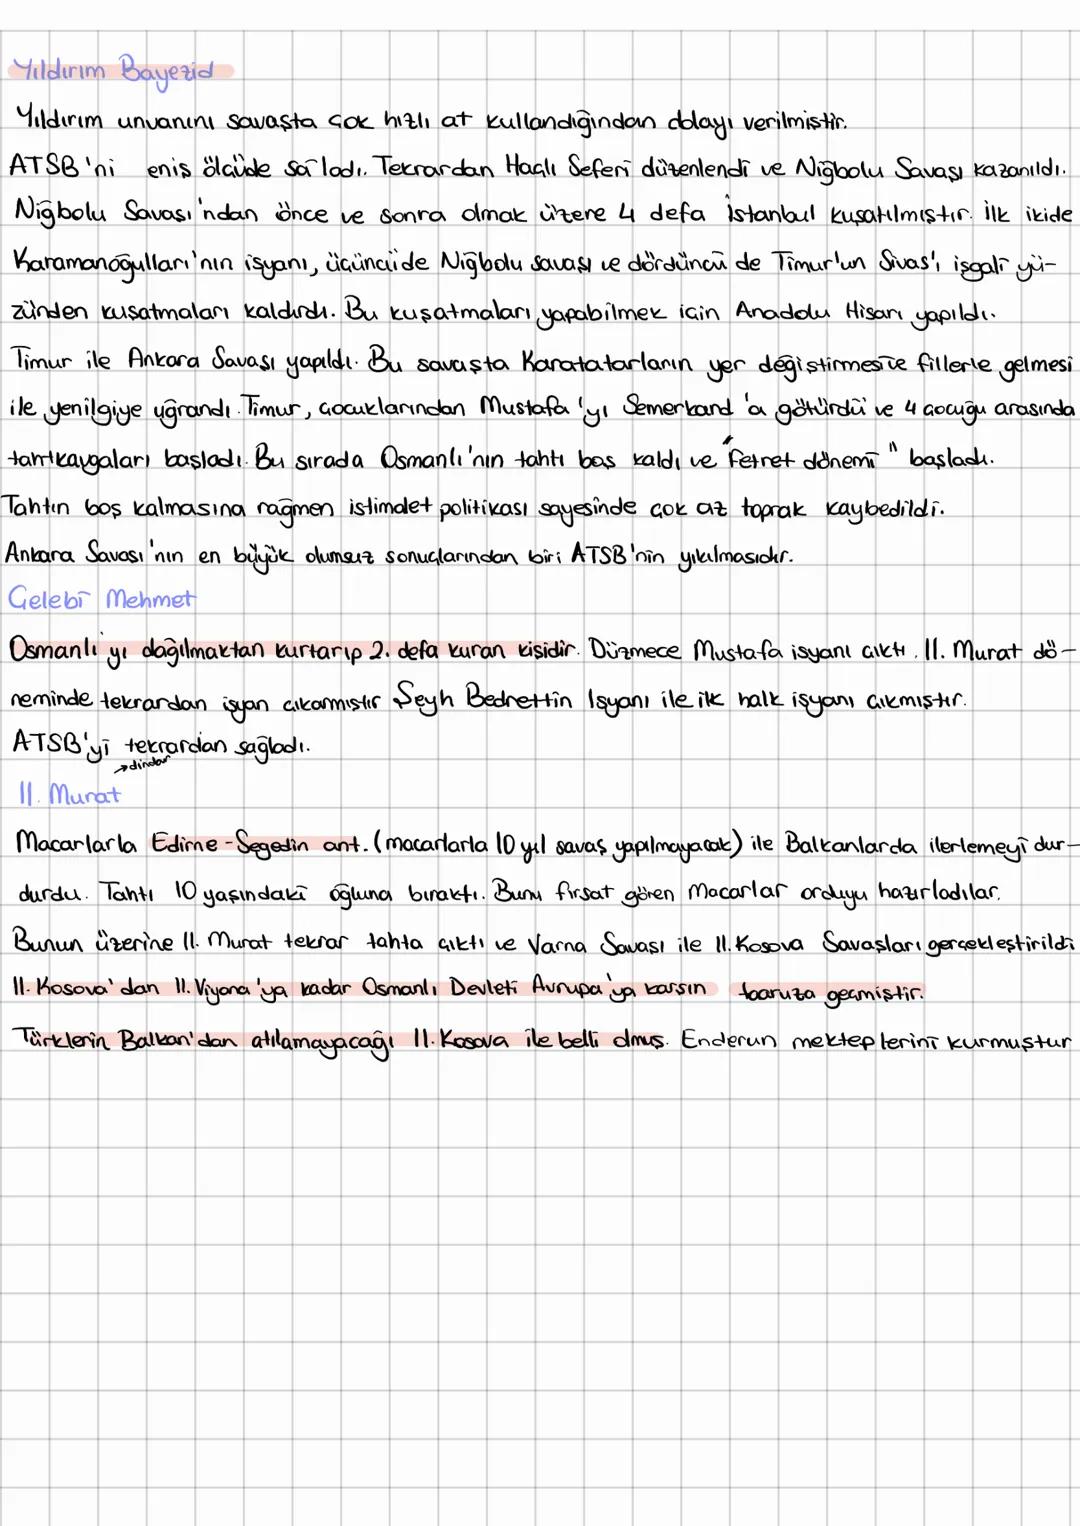 Yıldırım Bayezid
Yıldırım unvanını savaşta çok hızlı at kullandığından dolayı verilmiştir.
ATSB'ni eniş ölçüde sağladı. Tekrardan Haçlı Seferi düzenlendi ve Niğbolu Savaşı kazanıldı.
Niğbolu Savaşı'ndan önce ve sonra olmak üzere 4 defa İstanbul kuşatılmıştır. İlk ikide
Karamanoğulları'nın isyanı, üçüncüde Niğbolu savaşı ve dördüncü de Timur'un Sivas'ı işgali yü-
zünden kuşatmaları kaldırdı. Bu kuşatmaları yapabilmek için Anadolu Hisarı yapıldı.
Timur ile Ankara Savaşı yapıldı. Bu savaşta Karatatarların yer değiştirmesi ve fillerle gelmesi
ile yenilgiye uğrandı. Timur, çocuklarından Mustafa'yı Semerkand'a götürdü ve 4 çocuğu arasında
taht kavgaları başladı. Bu sırada Osmanlı'nın tahtı boş kaldı ve "Fetret dönemi" başladı.
Tahtın boş kalmasına rağmen istimalet politikası sayesinde çok az toprak kaybedildi.
Ankara Savaşı'nın en büyük olumsuz sonuçlarından biri ATSB'nin yıkılmasıdır.
Çelebi Mehmet
Osmanlı'yı dağılmaktan kurtarıp 2. defa kuran kişidir. Düzmece Mustafa isyanı çıktı. II. Murat dö-
neminde tekrardan isyan çıkarmıştır Şeyh Bedrettin Isyanı ile ilk halk isyanı çıkmıştır.
ATSB'yi tekrardan sağladı.
→dindar
II. Murat
Macarlarla Edirne-Segedin ant. (macarlarla 10 yıl savaş yapılmayacak) ile Balkanlarda ilerlemeyi dur-
durdu. Tahtı 10 yaşındaki oğluna bıraktı. Bunu fırsat gören Macarlar orduyu hazırladılar.
Bunun üzerine II. Murat tekrar tahta çıktı ve Varna Savaşı ile II. Kosova Savaşları gerçekleştirildi
II. Kosova'dan II. Viyana'ya kadar Osmanlı Devleti Avrupa'ya karşın taaruza geçmiştir.
Türklerin Balkan'dan atılamayacağı II. Kosova ile belli olmuş. Enderun mekteplerini kurmuştur